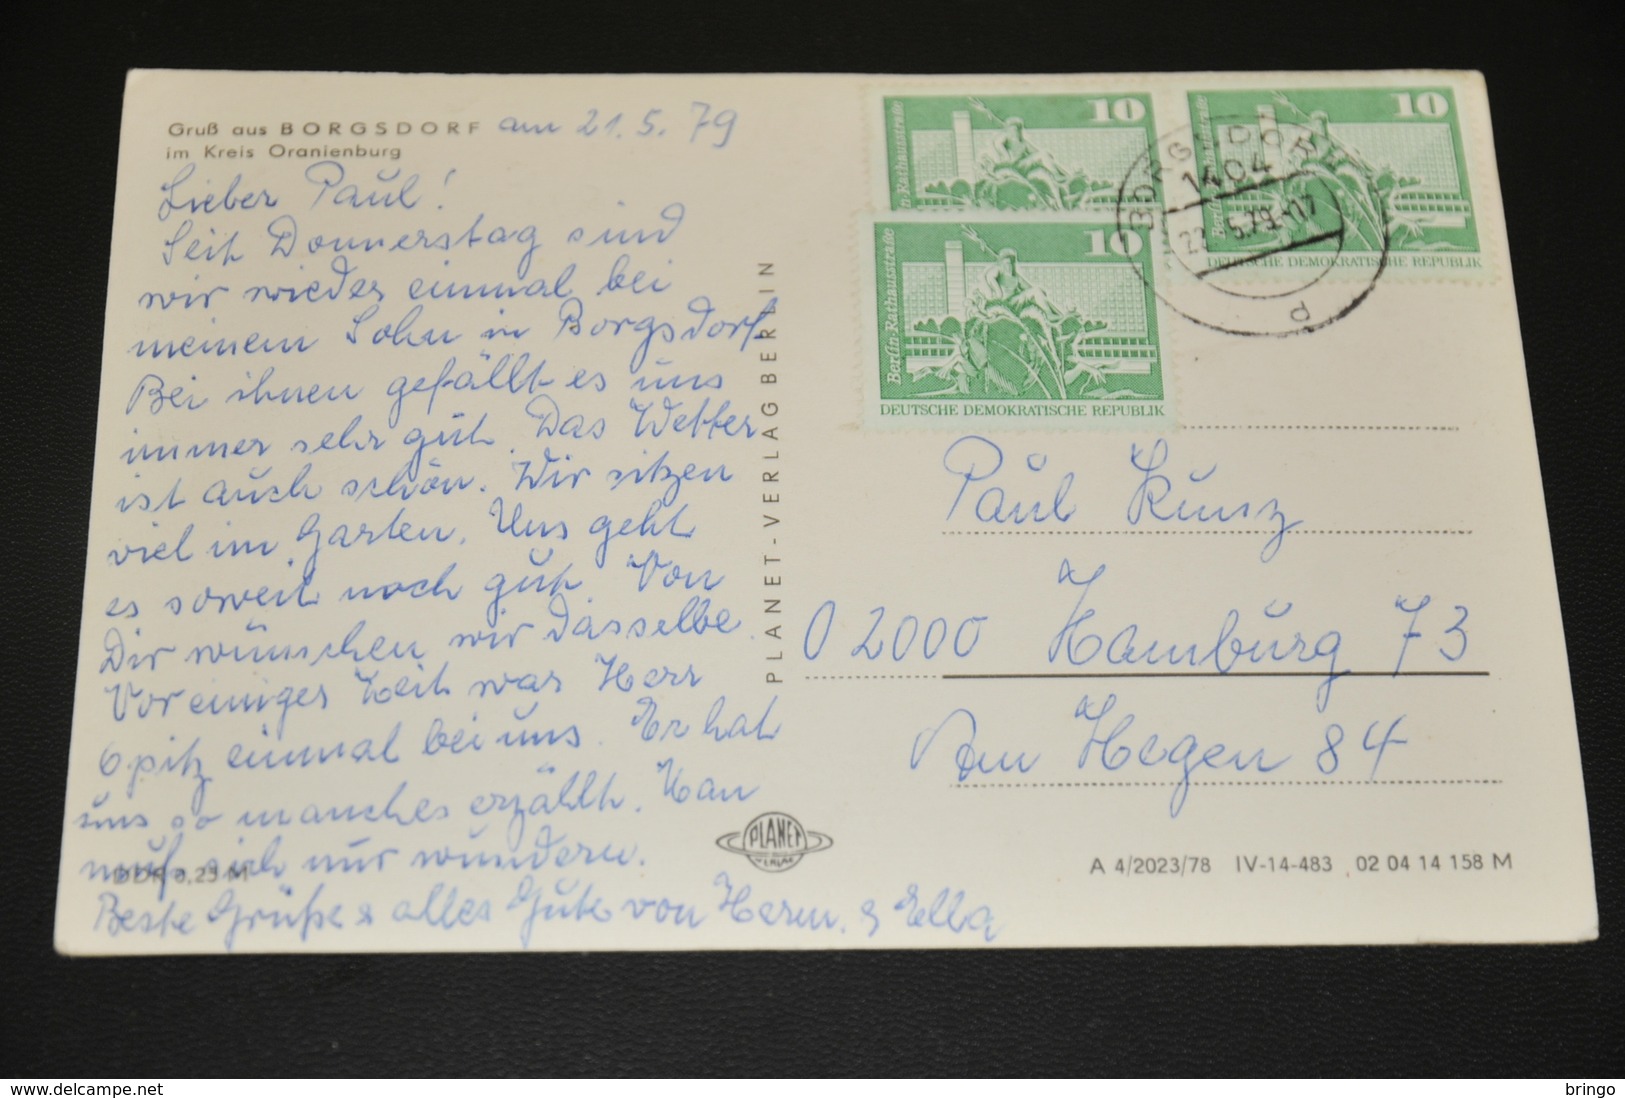 Gruß aus BORGSDORF am 21.5.79
im Kreis Oranienburg
Lieber Paul!
Seit Donnerstag sind
wir wieder einmal bei
meinem Sohn in Borgsdorf
Bei ihnen gefällt es uns
immer sehr gut. Das Wetter
ist auch schön. Wir sitzen
viel im Garten. Uns geht
es soweit noch gut. Von
Dir wünschen wir dasselbe.
Vor einiger Zeit war Herr
Opitz einmal bei uns. Er hat
uns so manches erzählt. Man
muß sich nur wundern.
DDR 0,25 M
Beste Grüße & alles Gute von Herm. & Ella
PLANET-VERLAG BERLIN
PLANET
VERLAG
10
Berlin-Rathausstraße
10
Berlin-Rathausstraße
DEUTSCHE DEMOKRATISCHE REPUBLIK
10
Berlin-Rathausstraße
DEUTSCHE DEMOKRATISCHE REPUBLIK
BORGSDORF
1404
22.5.79.-17
d
Paul Kunz
02000 Hamburg 73
Am Hegen 84
A 4/2023/78 IV-14-483 02 04 14 158 M
www.delcampe.net
bringo